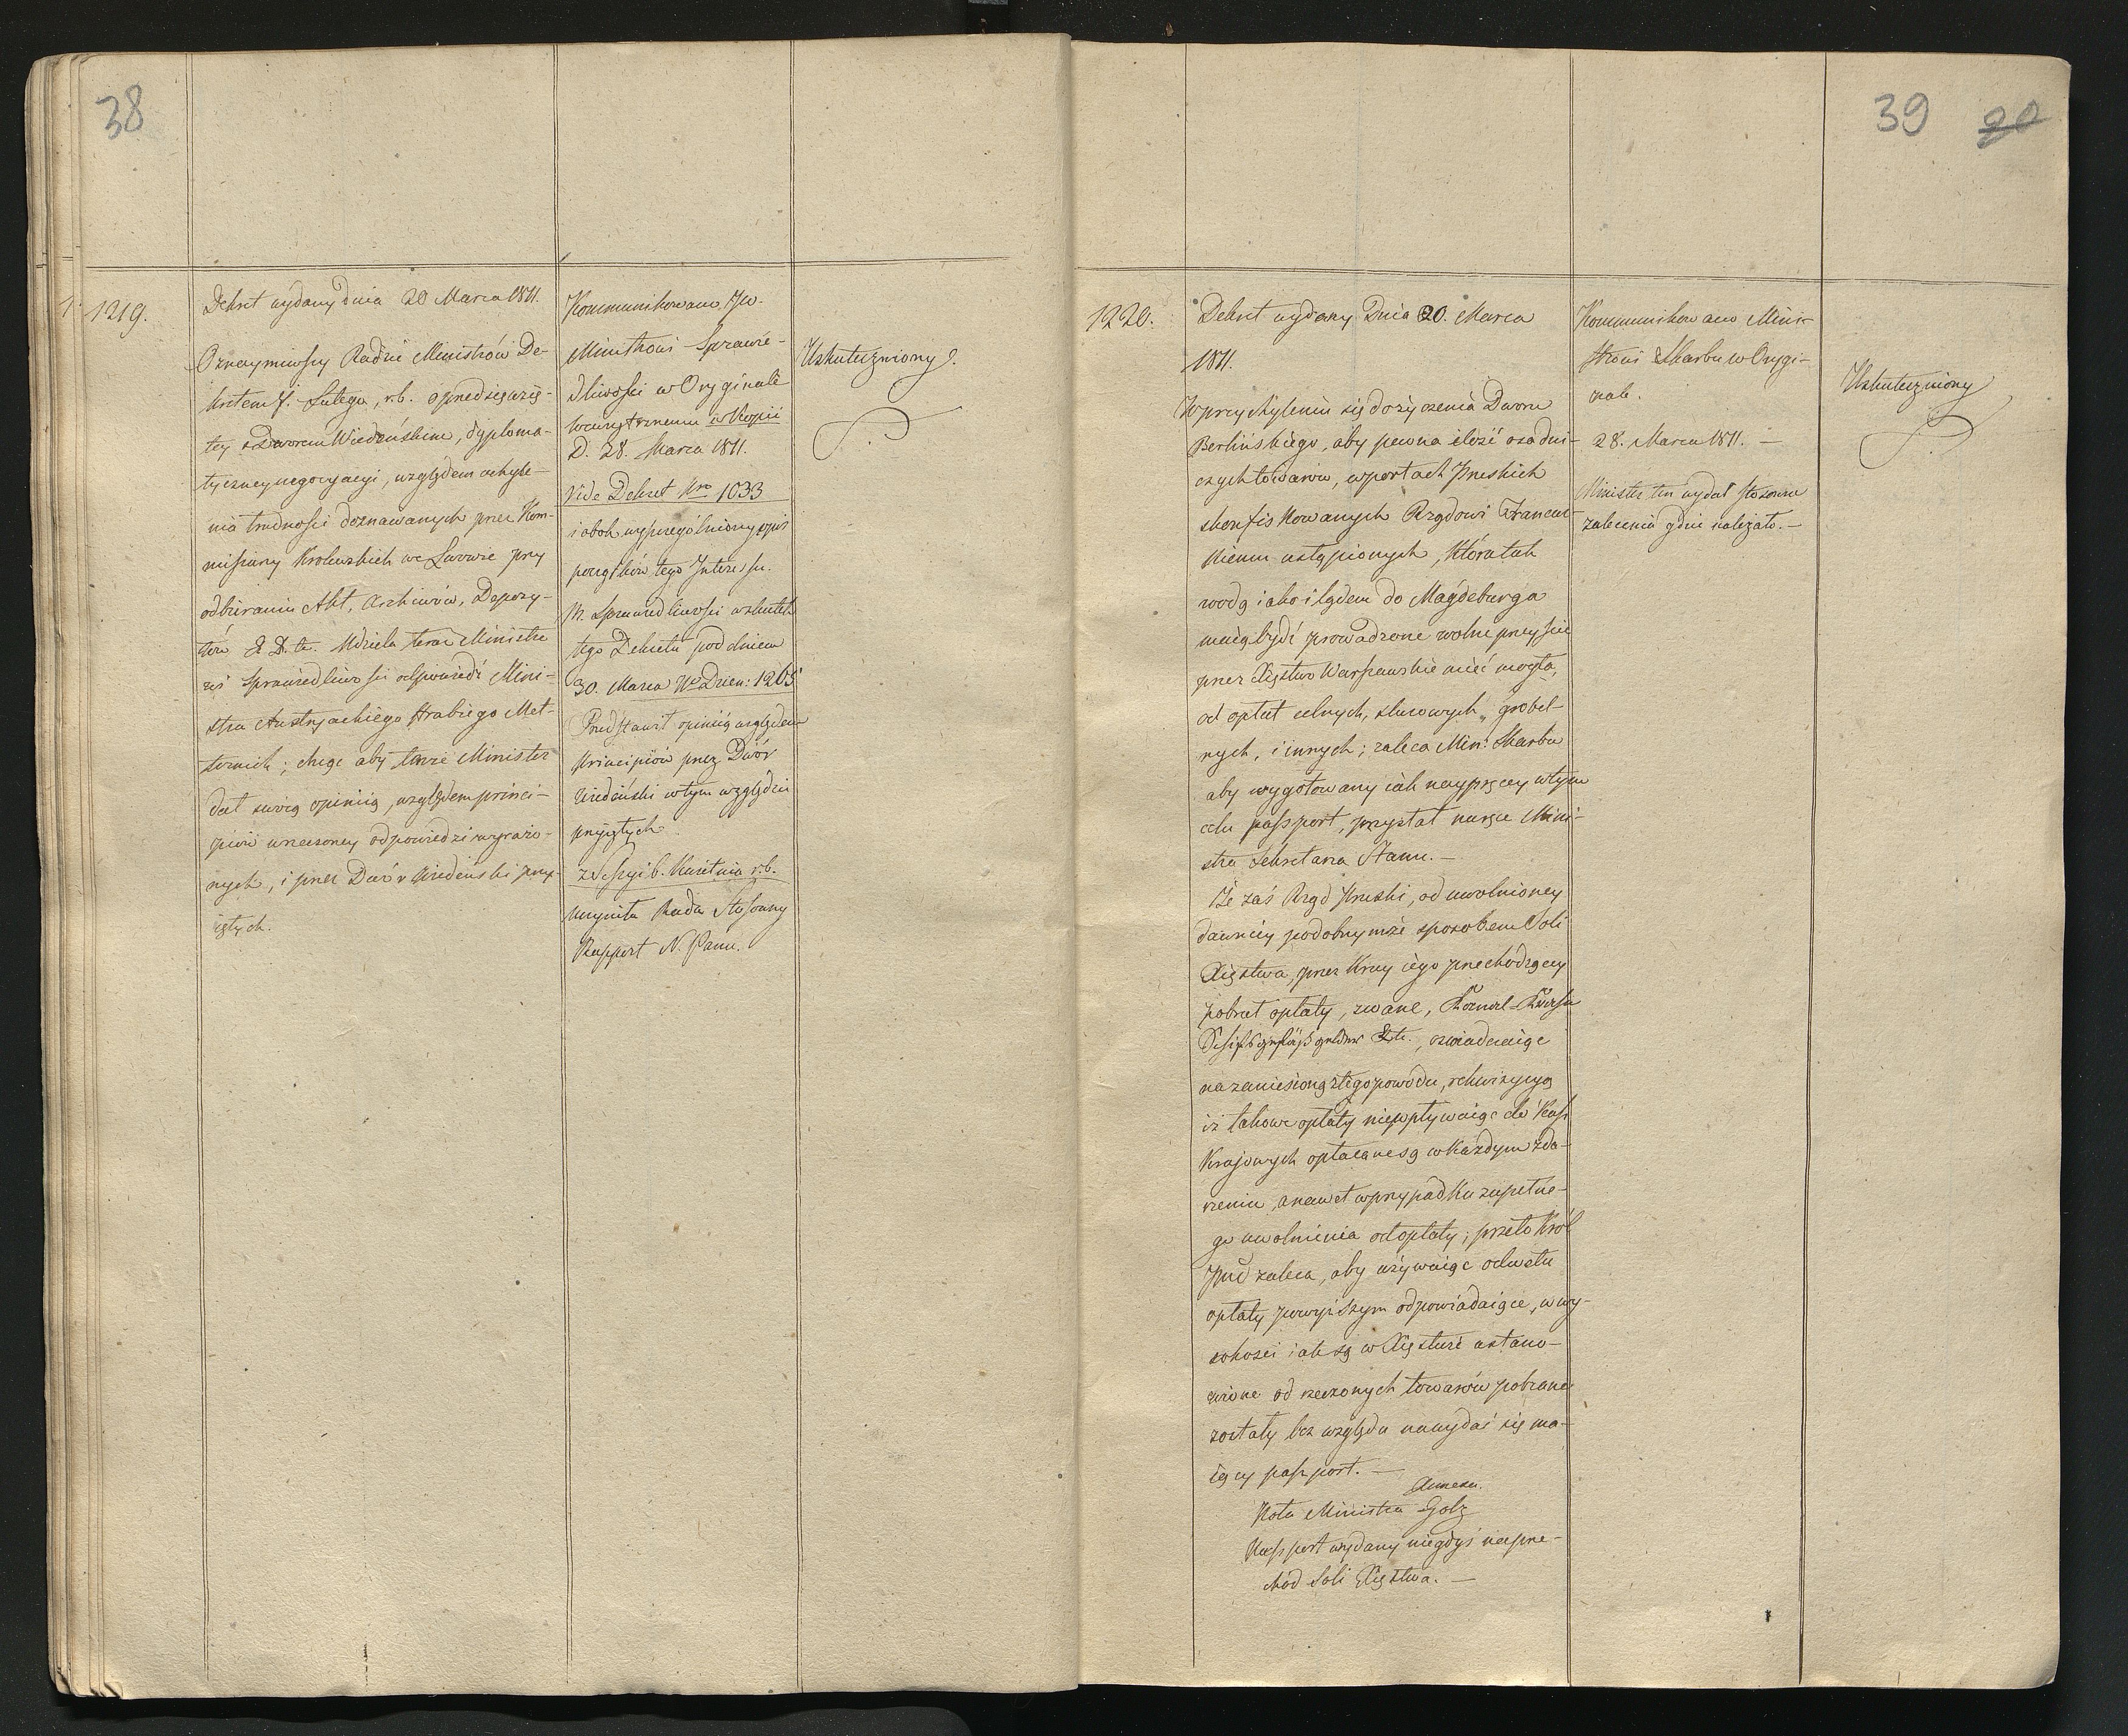 38
1219.
Dekret wydany dnia 20 Marca 1811.
Oznaymiwszy Radzie Ministrów De-
kretem 7. Lutego, r.b. o przedsięwzię-
tey z Dworem Wiedeńskim, dyploma-
tyczney negocyacyi, względem uchyle-
nia trudności doznawanych przez Kom-
missarzy Królewskich we Lwowie przy
odbieraniu Akt, Archiwów, Depozy-
tów & & tc. Udziela teraz Ministro-
wi Sprawiedliwości odpowiedź Mini-
stra Austryackiego Hrabiego Met-
ternich; chcąc aby tenże Minister
dał swoią opiniią, względem princi-
piów w rzeczoney odpowiedzi wyrażo-
nych, i przez Dwór Wiedeński przy-
iętych.
Kommunikowano JW.
Ministrowi Sprawie-
dliwości w Oryginale
wewnętrznemu w Kopii
D. 28. Marca 1811.
Vide Dekret Nro 1033
i obok wyszczególniony opis
początków tego Interessu.
M. Sprawiedliwości w skutek
tego Dekretu pod dniem
30. Marca No Dzien: 1265
Przedstawił opiniią względem
Principiów przez Dwór
Wiedeński w tym względzie
przyjętych
z Sessyi 6. Kwietnia r.b.
uczyniła Rada stosowny
Rapport N. Panu.
Uskuteczniony
39 20
1220.
Dekret wydany Dnia 20. Marca
1811.
W przychyleniu się do życzenia Dworu
Berlińskiego, aby pewna ilość osadni-
czych towarów, w portach Pruskich
skonfiskowanych Rządowi Francuz-
kiemu ustąpionych, która tak
wodą iako i lądem do Magdeburga
maią bydź prowadzone wolne przeyście
przez Xięstwo Warszawskie mieć mogła,
od opłat celnych, szluzowych, grobel-
nych, i innych; zaleca Min: Skarbu
aby wygotowany iak nayprędzey w tym
celu passport, przysłał na ręce Mini-
stra Sekretarza Stanu. —
Że zaś Rząd Pruski, od uwolnioney
dawniey podobnymże sposobem Soli
Xięstwa, przez Kray iego przechodzącey
pobrał opłaty, zwane, Kanal-
Schiffsgefäß gelder & tc., oświadczaiąc
na zaniesioną z tego powodu, rekwizycyą
iż takowe opłaty nie wpływaiąc do Kass
Krajowych opłacane są w każdym zda-
rzeniu, a nawet w przypadku zupełne-
go uwolnienia od opłaty; przeto Król
Jmć zaleca, aby używaiąc odwetu
opłaty powyższym odpowiadaiące, w wy-
sokości iak są w Xięstwie ustano-
wione od rzeczonych towarów pobrane
zostały bez względu na wydać się ma-
iący passport. —
Annexa.
Nota Ministra Golz
Passport wydany niegdyś na prze-
chód Soli Xięstwa. —
Kommunikowano Mini-
strowi Skarbu w Orygi-
nale.
28. Marca 1811. —
Minister ten wydał stosowne
zalecenia gdzie należało. —
Uskuteczniony